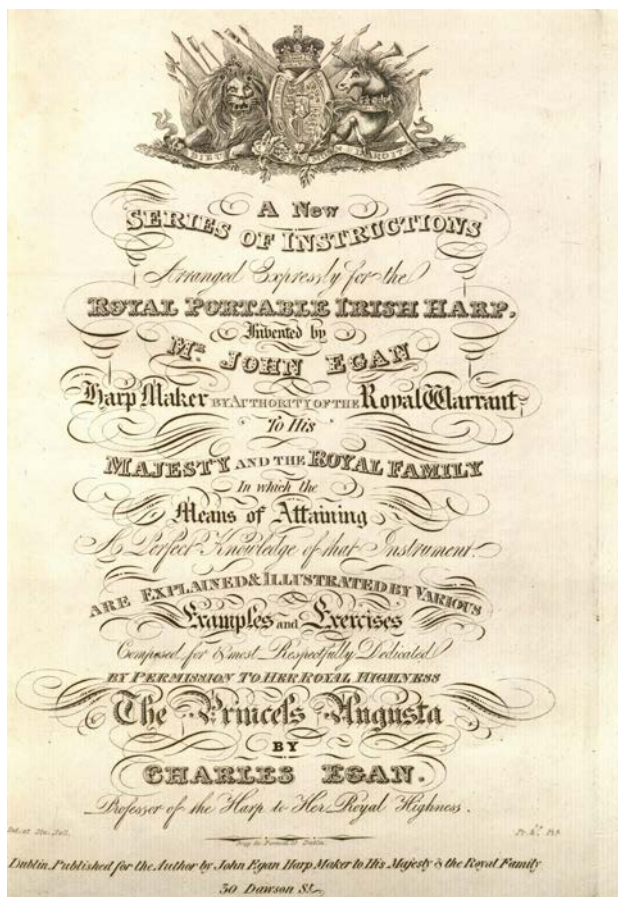 DIEU ET MON DROIT
A New
SERIES OF INSTRUCTIONS
Arranged Expressly for the
ROYAL PORTABLE IRISH HARP,
Invented by
Mr. JOHN EGAN
Harp Maker BY AUTHORITY OF THE Royal Warrant
To His
MAJESTY AND THE ROYAL FAMILY
In which the
Means of Attaining
A Perfect Knowledge of that Instrument
ARE EXPLAINED & ILLUSTRATED BY VARIOUS
Examples and Exercises
Composed for & most Respectfully Dedicated
BY PERMISSION TO HER ROYAL HIGHNESS
The Princeſs Augusta
BY
CHARLES EGAN.
Professor of the Harp to Her Royal Highness.
Ent. at Sta. Hall.
Dublin
Dublin, Published for the Author by John Egan Harp Maker to His Majesty & the Royal Family
30 Dawson St.